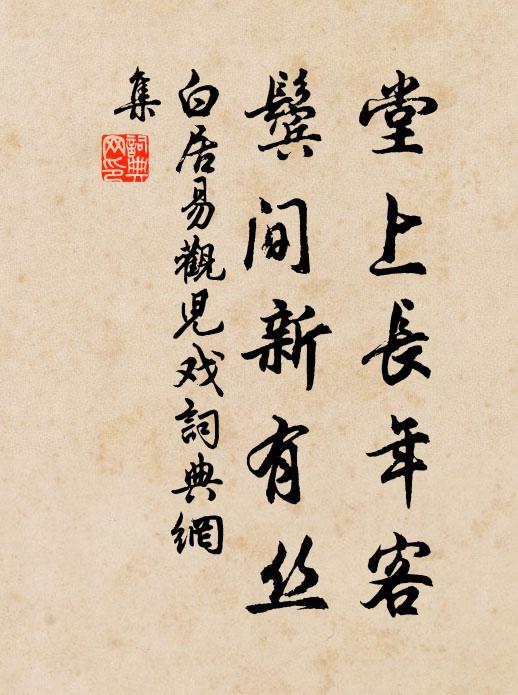 堂上長年客
鬓間新有丝
白居易觀児戏詞典網
集
詞典網印